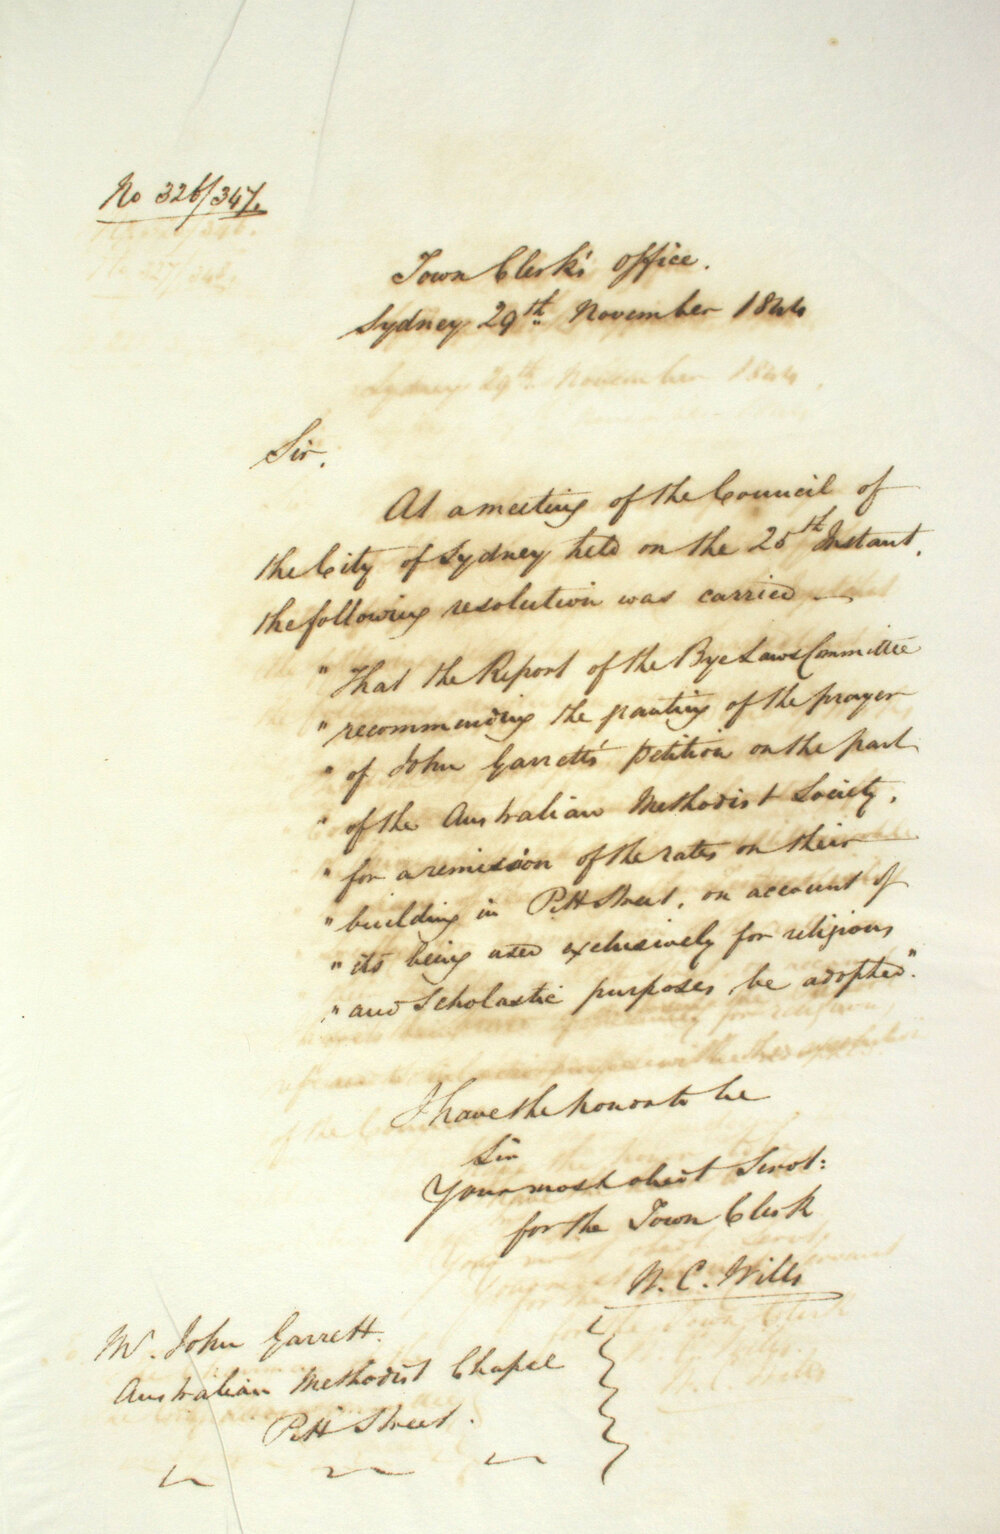 No 326/347.
Town Clerk's office.
Sydney 29th November 1844
Sir,
At a meeting of the Council of
the City of Sydney held on the 25th Instant,
the following resolution was carried —
" That the Report of the Bye Laws Committee
" recommending the granting of the prayer
" of John Garrett's petition on the part
" of the Australian Methodist Society,
" for a remission of the rates on their
" building in Pitt Street, on account of
" its being used exclusively for religious
" and Scholastic purposes, be adopted".
I have the honor to be
Sir
Your most obedt Servt:
for the Town Clerk
W. C. Wills
Mr. John Garrett.
Australian Methodist Chapel
Pitt Street.